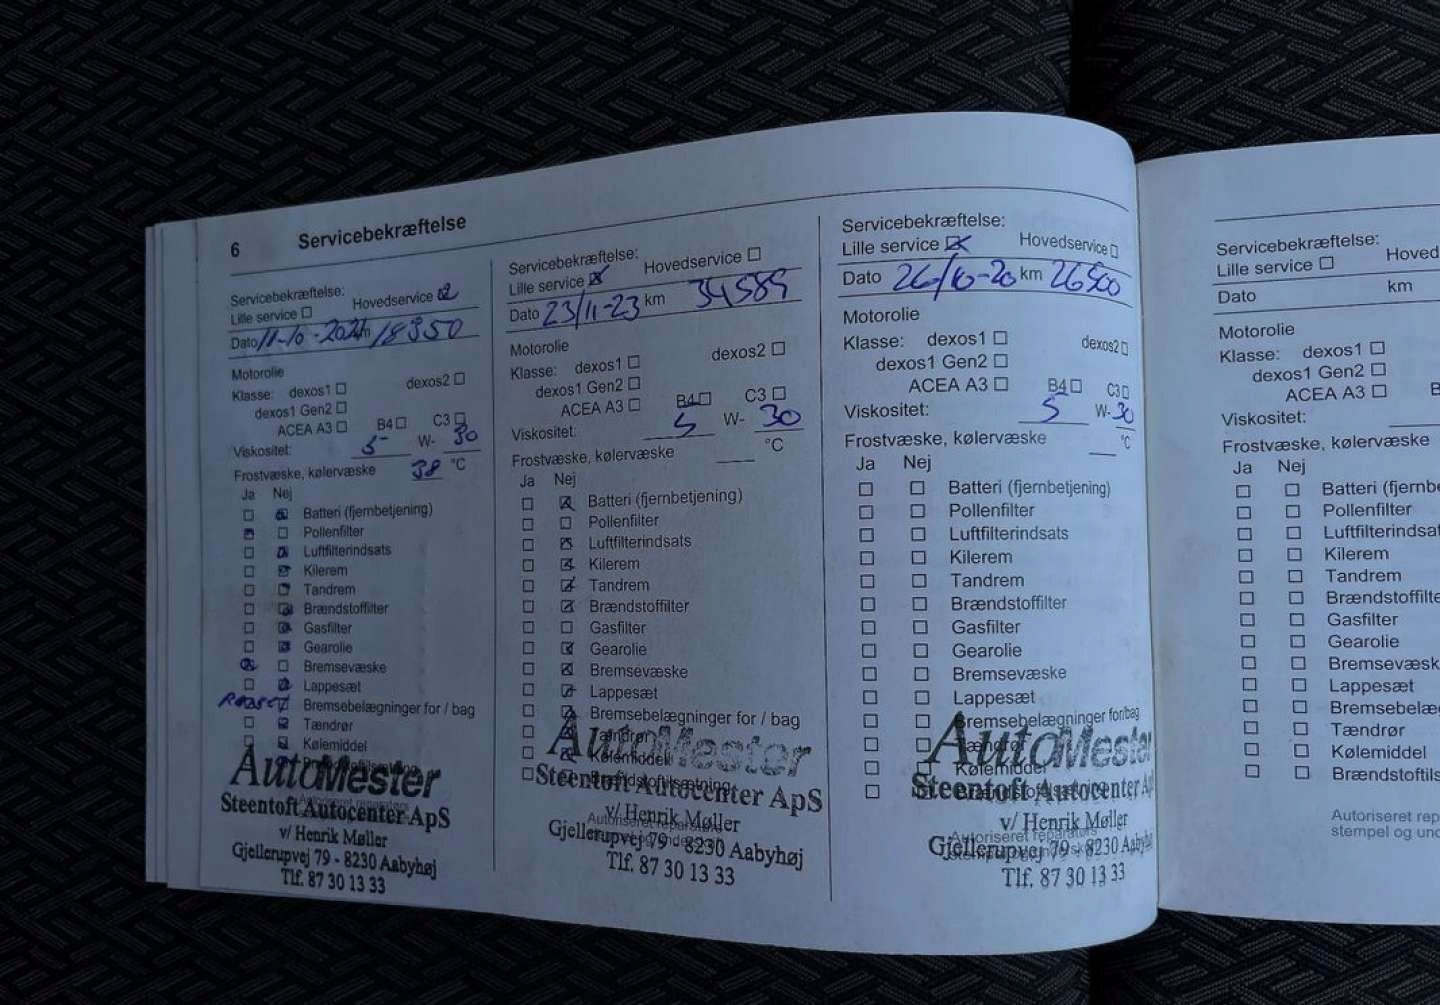 6 Servicebekræftelse
Servicebekræftelse:
Lille service Hovedservice
Dato 11-10-2021 km 18350
Motorolie
Klasse: dexos1 dexos2
dexos1 Gen2
ACEA A3 B4 C3
Viskositet: 5 W- 30
Frostvæske, kølervæske 38 °C
Ja Nej
Batteri (fjernbetjening)
Pollenfilter
Luftfilterindsats
Kilerem
Tandrem
Brændstoffilter
Gasfilter
Gearolie
Bremsevæske
Lappesæt
Bremsebelægninger for / bag
Tændrør
Kølemiddel
AutoMester
Steentoft Autocenter ApS
v/ Henrik Møller
Gjellerupvej 79 - 8230 Aabyhøj
Tlf. 87 30 13 33
Servicebekræftelse:
Lille service Hovedservice
Dato 23/11-23 km 34589
Motorolie
Klasse: dexos1 dexos2
dexos1 Gen2
ACEA A3 B4 C3
Viskositet: 5 W- 30
Frostvæske, kølervæske °C
Ja Nej
Batteri (fjernbetjening)
Pollenfilter
Luftfilterindsats
Kilerem
Tandrem
Brændstoffilter
Gasfilter
Gearolie
Bremsevæske
Lappesæt
Bremsebelægninger for / bag
Tændrør
Kølemiddel
Brændstoftilsætning
AutoMester
Steentoft Autocenter ApS
v/ Henrik Møller
Autoriseret reparatørs
Gjellerupvej 79 - 8230 Aabyhøj
Tlf. 87 30 13 33
Servicebekræftelse:
Lille service Hovedservice
Dato 26/10-20 km 26500
Motorolie
Klasse: dexos1 dexos2
dexos1 Gen2
ACEA A3 B4 C3
Viskositet: 5 W- 30
Frostvæske, kølervæske °C
Ja Nej
Batteri (fjernbetjening)
Pollenfilter
Luftfilterindsats
Kilerem
Tandrem
Brændstoffilter
Gasfilter
Gearolie
Bremsevæske
Lappesæt
Bremsebelægninger for/bag
Tændrør
Kølemiddel
Brændstoftilsætning
AutoMester
Steentoft Autocenter Ap
v/ Henrik Møller
Autoriseret reparatørs
Gjellerupvej 79 - 8230 Aabyhø
Tlf. 87 30 13 33
Servicebekræftelse:
Lille service Hoved
Dato km
Motorolie
Klasse: dexos1
dexos1 Gen2
ACEA A3
Viskositet:
Frostvæske, kølervæske
Ja Nej
Batteri (fjernbe
Pollenfilter
Luftfilterindsat
Kilerem
Tandrem
Brændstoffilte
Gasfilter
Gearolie
Bremsevæsk
Lappesæt
Bremsebelæg
Tændrør
Kølemiddel
Brændstoftils
Autoriseret rep
stempel og und